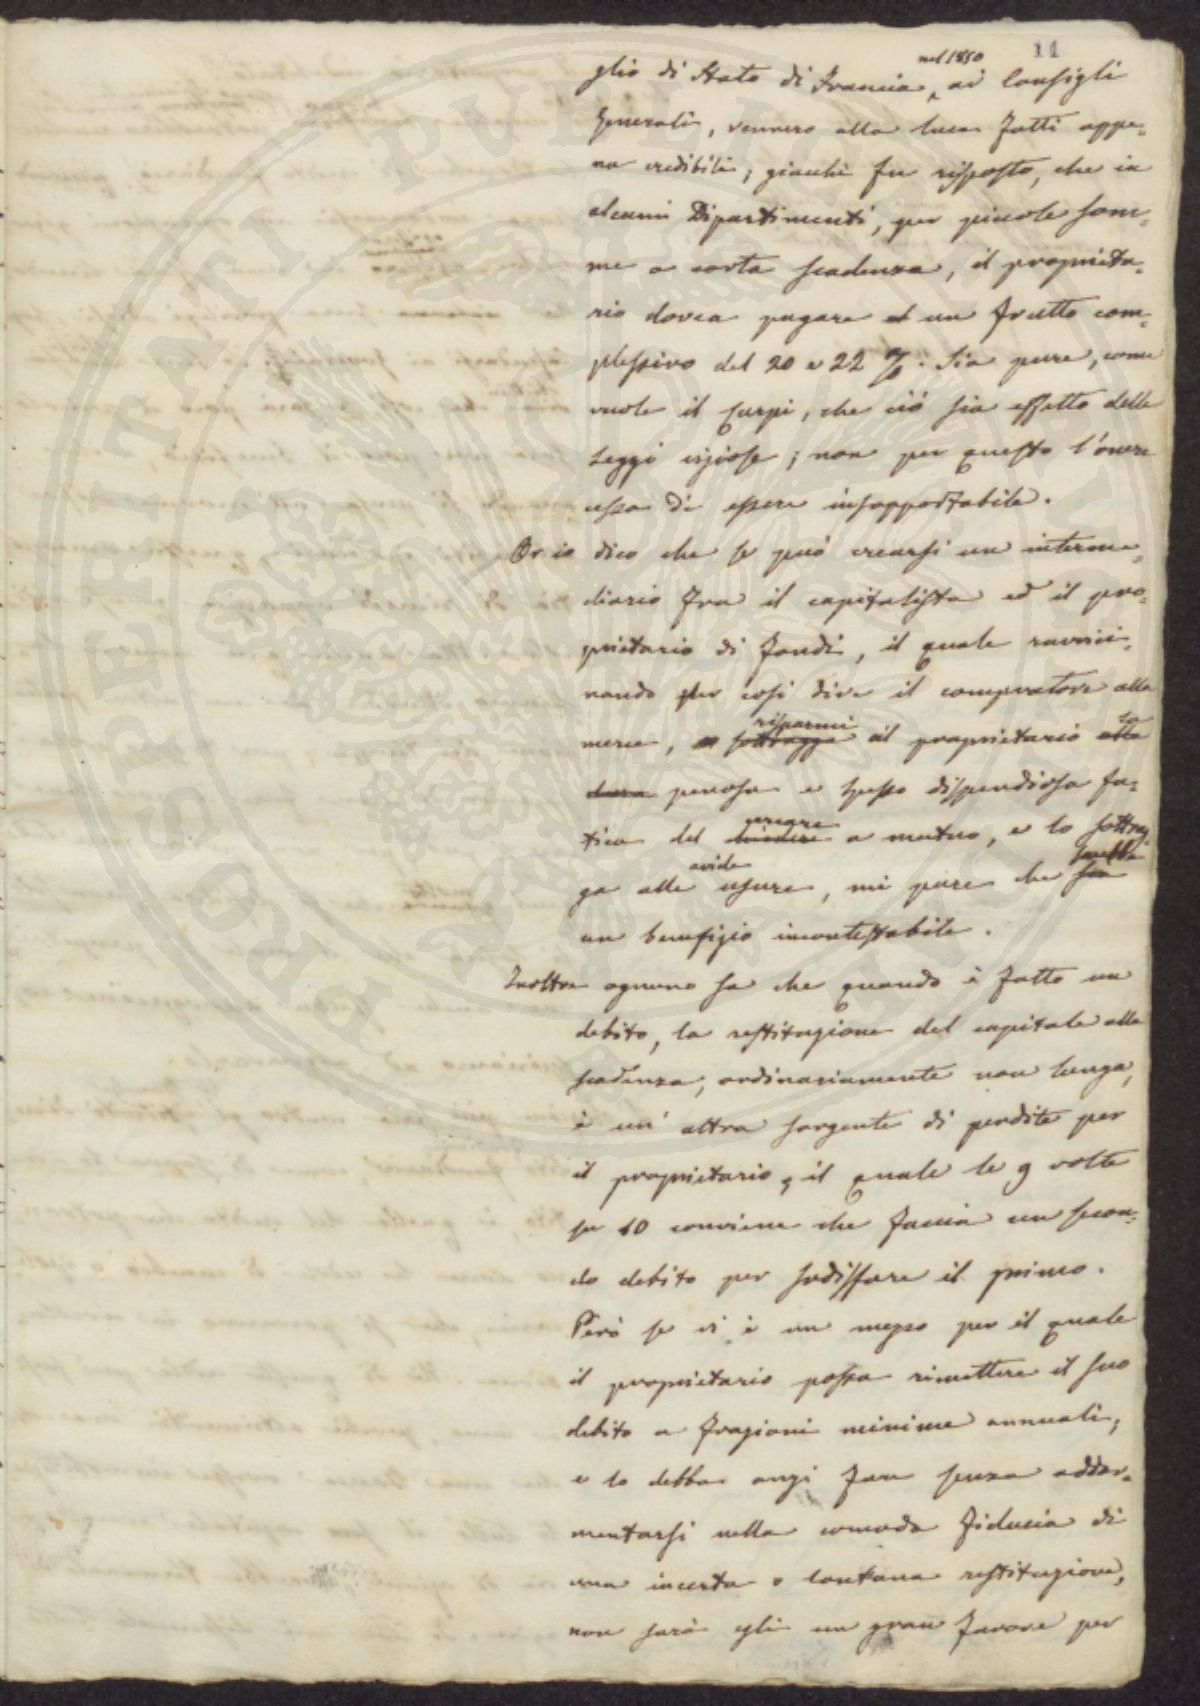 11
nel 1850
glio di Stato di Francia, ai Consigli
Generali, vennero alla luce fatti appe-
na credibili; giacchè fu risposto, che in
alcuni Dipartimenti, per piccole som-
me a corta scadenza, il proprieta-
rio dovea pagare un frutto com-
plessivo del 20 e 22 %. Sia pure, come
vuole il Carpi, che ciò sia effetto delle
Leggi viziose; non per questo l'onere
cessa di essere insopportabile.
Or io dico che se può crearsi un interme-
diario fra il capitalista ed il pro-
prietario di fondi, il quale ravvici-
nando per così dire il compratore alla
risparmi la
merce, sottragga al proprietario alla
dura penosa e spesso dispendiosa fa-
cercare
tica del chiedere a mutuo, e lo sottrag-
avide sarebbe
ga alle usure, mi pare che sia
un benefizio incontestabile.
Inoltre ognuno sa che quando è fatto un
debito, la restituzione del capitale alla
scadenza, ordinariamente non lunga,
è un' altra sorgente di perdite per
il proprietario, il quale le 9 volte
su 10 conviene che faccia un secon-
do debito per sodisfare il primo.
Però se vi è un mezzo per il quale
il proprietario possa rimettere il suo
debito a frazioni minime annuali,
e lo debba anzi fare senza addor-
mentarsi nella comoda fiducia di
una incerta o lontana restituzione,
non sarà egli un gran favore per
PROSPERITATI PVBLICAE